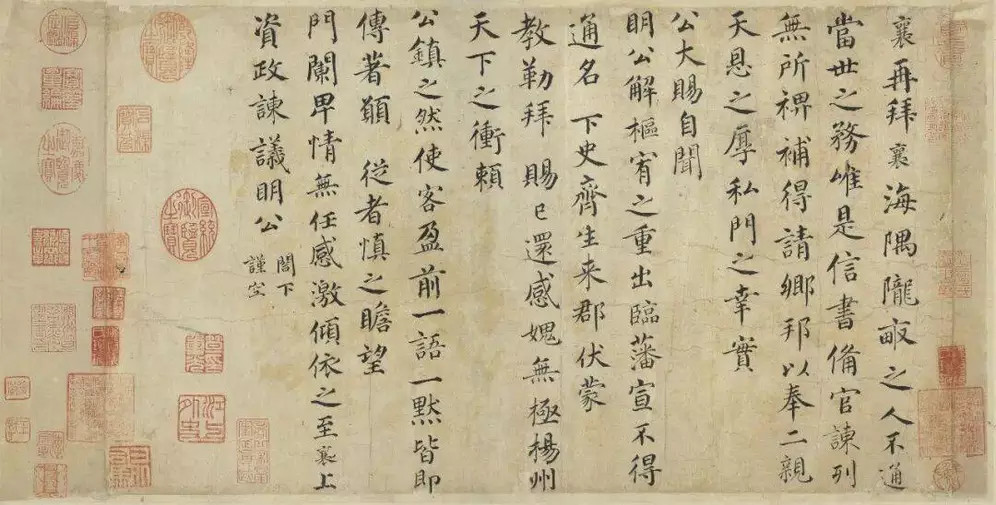 襄再拜襄海隅隴畝之人不通
當世之務唯是信書備官諫列
無所裨補得請鄉邦以奉二親
天恩之厚私門之幸實
公大賜自聞
明公解樞宥之重出臨藩宣不得
通名 下史齊生来郡伏蒙
教勒拜 賜已還感媿無極楊州
天下之衝賴
公鎮之然使客盈前一語一默皆即
傳著願 從者慎之瞻望
門闌卑情無任感激傾依之至襄上
資政諫議明公
閤下
謹空
乾隆御覽之寶
宣統御覽之寶
嘉慶御覽之寶